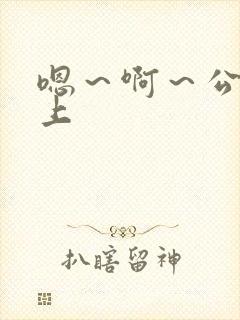 嗯～啊～公
上
扒瞎留神